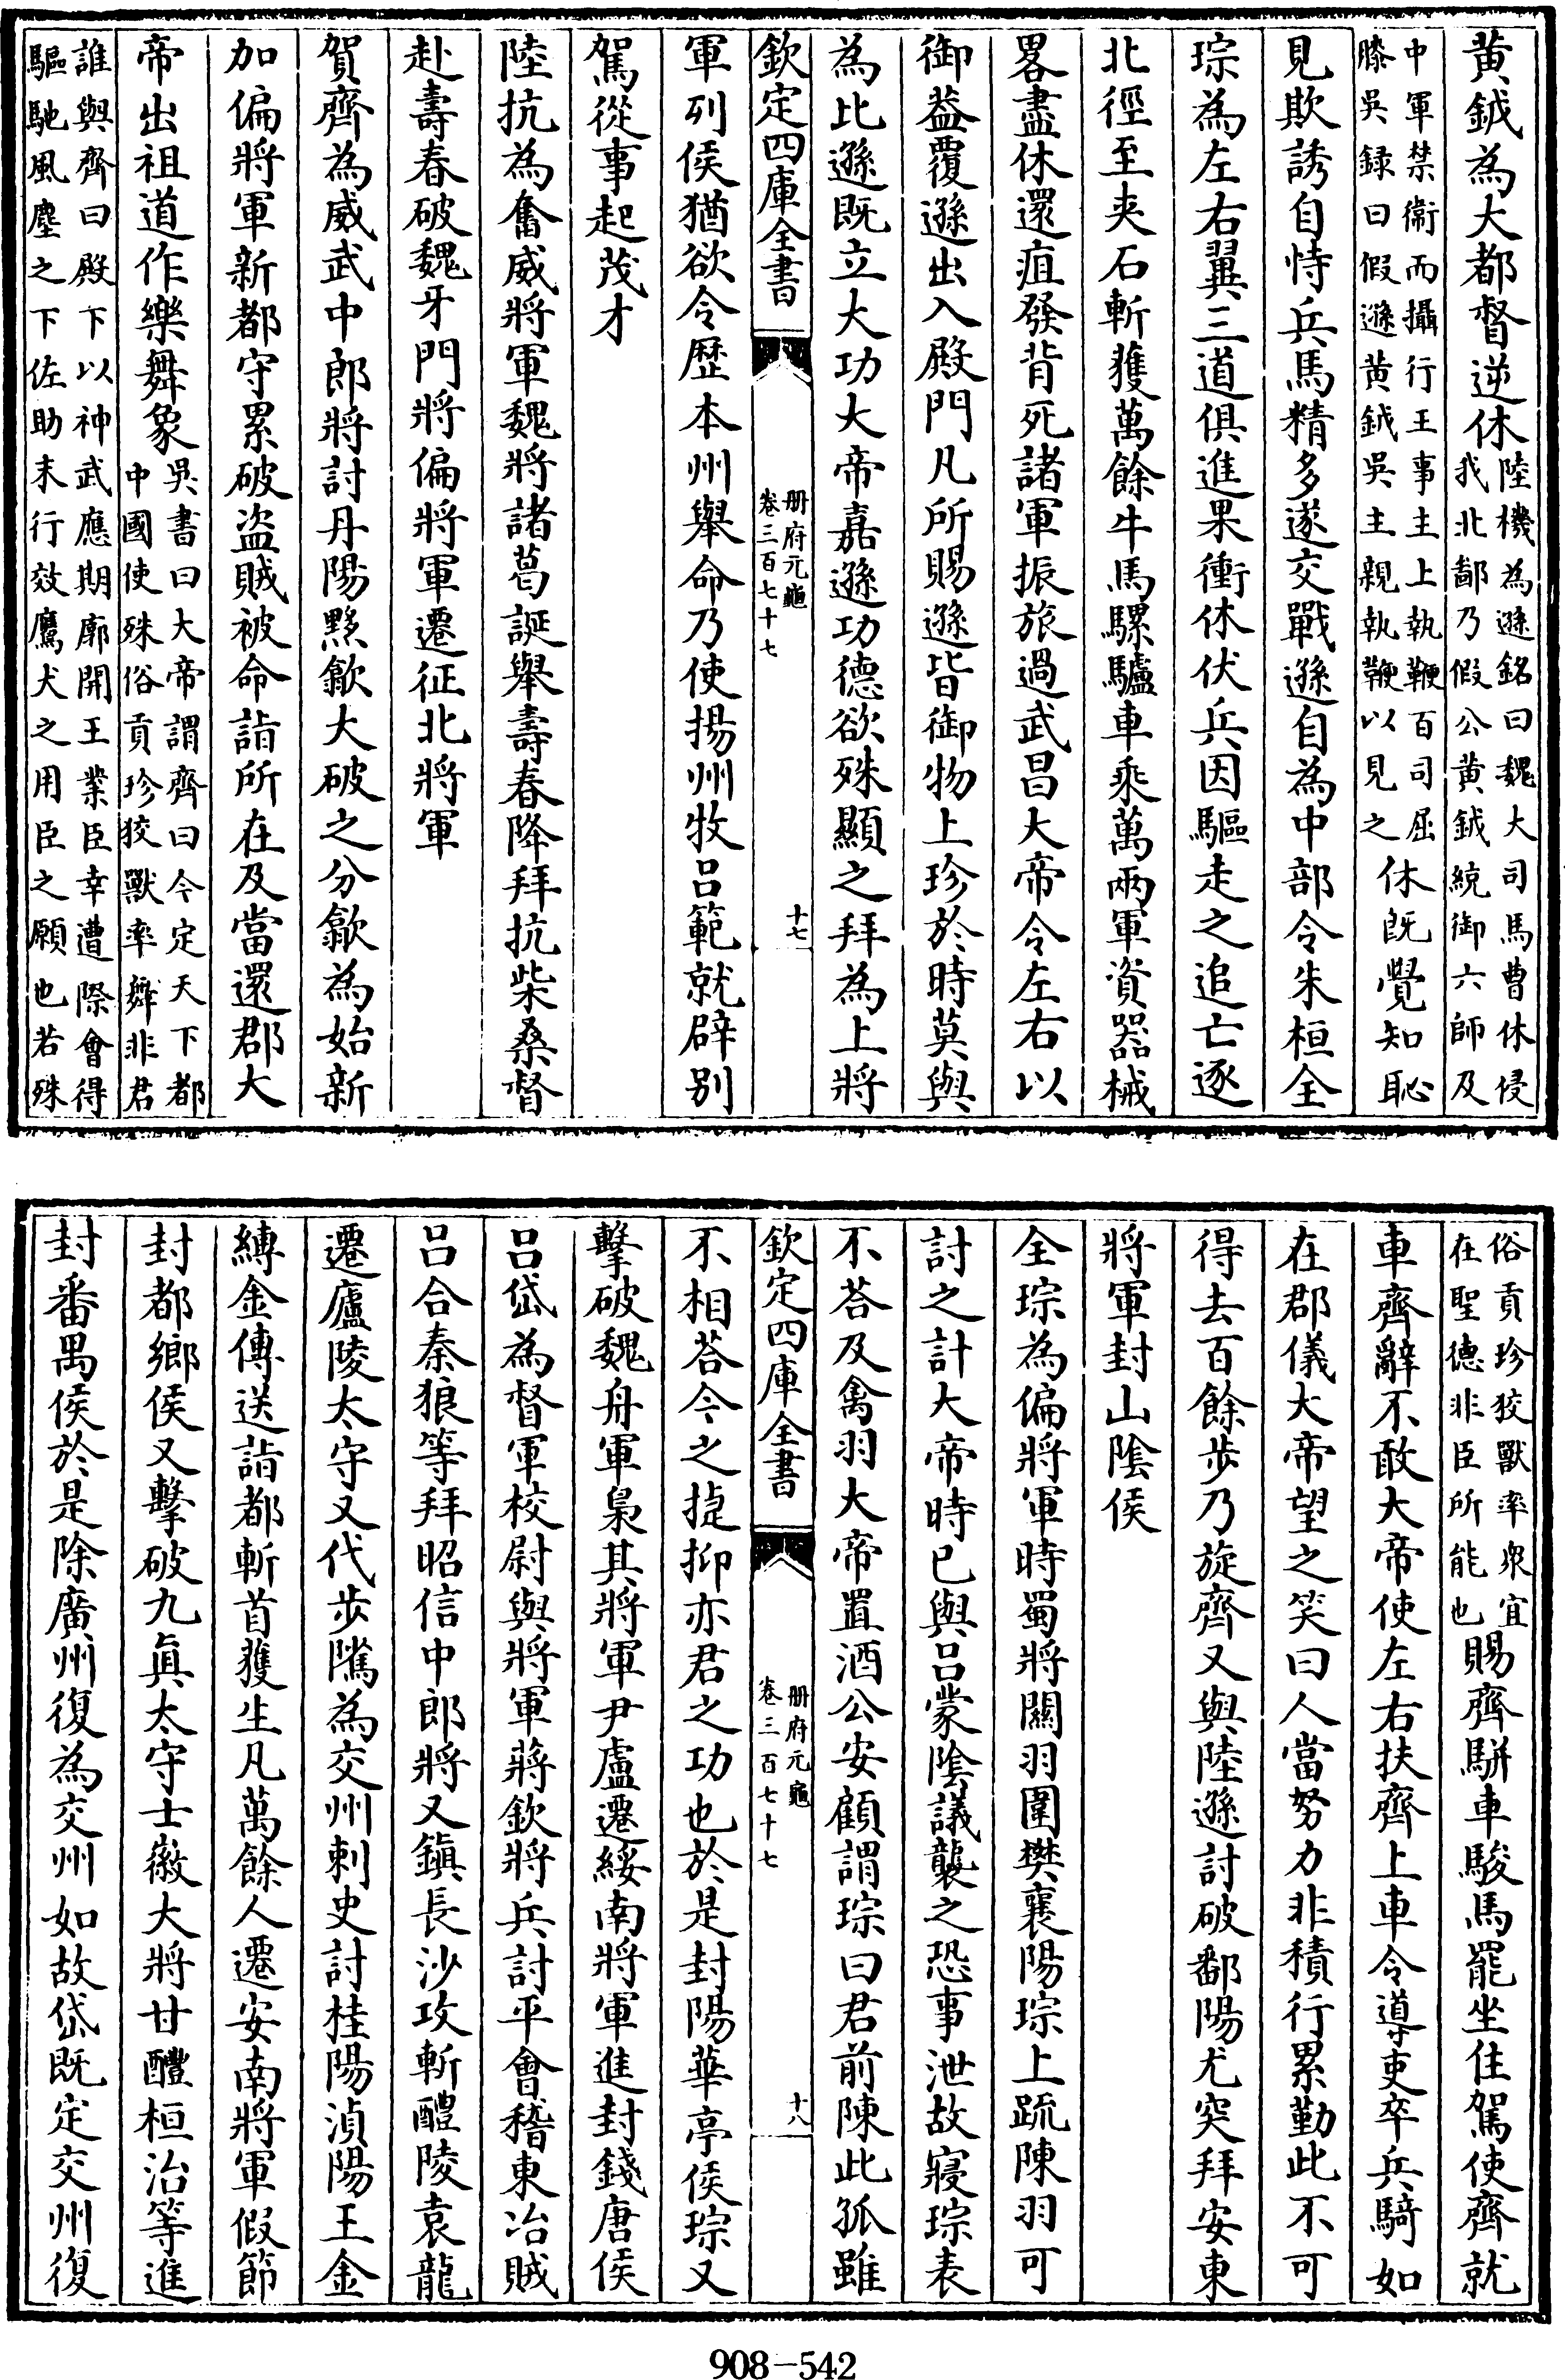 黄鉞為大都督逆休陸機為遜銘曰魏大司馬曹休侵我北鄙乃假公黄鉞統御六師及
中軍禁衛而攝行王事主上執鞭百司屈膝吳録曰假遜黄鉞吳主親執鞭以見之休既覺知恥
見欺誘自恃兵馬精多遂交戰遜自為中部令朱桓全
琮為左右翼三道俱進果衝休伏兵因驅走之追亡逐
北徑至夾石斬獲萬餘牛馬騾驢車乘萬兩軍資器械
畧盡休還疽發背死諸軍振旅過武昌大帝令左右以
御葢覆遜出入殿門凡所賜遜皆御物上珍於時莫與
為比遜既立大功大帝嘉遜功德欲殊顯之拜為上將
欽定四庫全書 册府元龜卷三百七十七 十七
軍列侯猶欲令歴本州舉命乃使揚州牧吕範就辟别
駕從事起茂才
陸抗為奮威將軍魏將諸葛誕舉壽春降拜抗柴桑督
赴壽春破魏牙門將偏將軍遷征北將軍
賀齊為威武中郎將討丹陽黟歙大破之分歙為始新
加偏將軍新都守累破盗賊被命詣所在及當還郡大
帝出祖道作樂舞象吳書曰大帝謂齊曰今定天下都中國使殊俗貢珍狡獸率舞非君
誰與齊曰殿下以神武應期廓開王業臣幸遭際會得驅馳風塵之下佐助末行效鷹犬之用臣之願也若殊
俗貢珍狡獸率衆宜在聖德非臣所能也賜齊駢車駿馬罷坐住駕使齊就
車齊辭不敢大帝使左右扶齊上車令導吏卒兵騎如
在郡儀大帝望之笑曰人當努力非積行累勤此不可
得去百餘步乃旋齊又與陸遜討破鄱陽尤突拜安東
將軍封山隂侯
全琮為偏將軍時蜀將關羽圍樊襄陽琮上疏陳羽可
討之計大帝時已與吕蒙隂議襲之恐事泄故寢琮表
不荅及禽羽大帝置酒公安顧謂琮曰君前陳此孤雖
欽定四庫全書 册府元龜卷三百七十七 十八
不相荅今之捷抑亦君之功也於是封陽華亭侯琮又
擊破魏舟軍梟其將軍尹盧遷綏南將軍進封錢唐侯
吕岱為督軍校尉與將軍蔣欽將兵討平會稽東冶賊
吕合秦狼等拜昭信中郎將又鎮長沙攻斬醴陵袁龍
遷廬陵太守又代步隲為交州刺史討桂陽湞陽王金
縛金傳送詣都斬首獲生凡萬餘人遷安南將軍假節
封都鄉侯又擊破九真太守士徽大將甘醴桓治等進
封番禺侯於是除廣州復為交州如故岱既定交州復
908-542